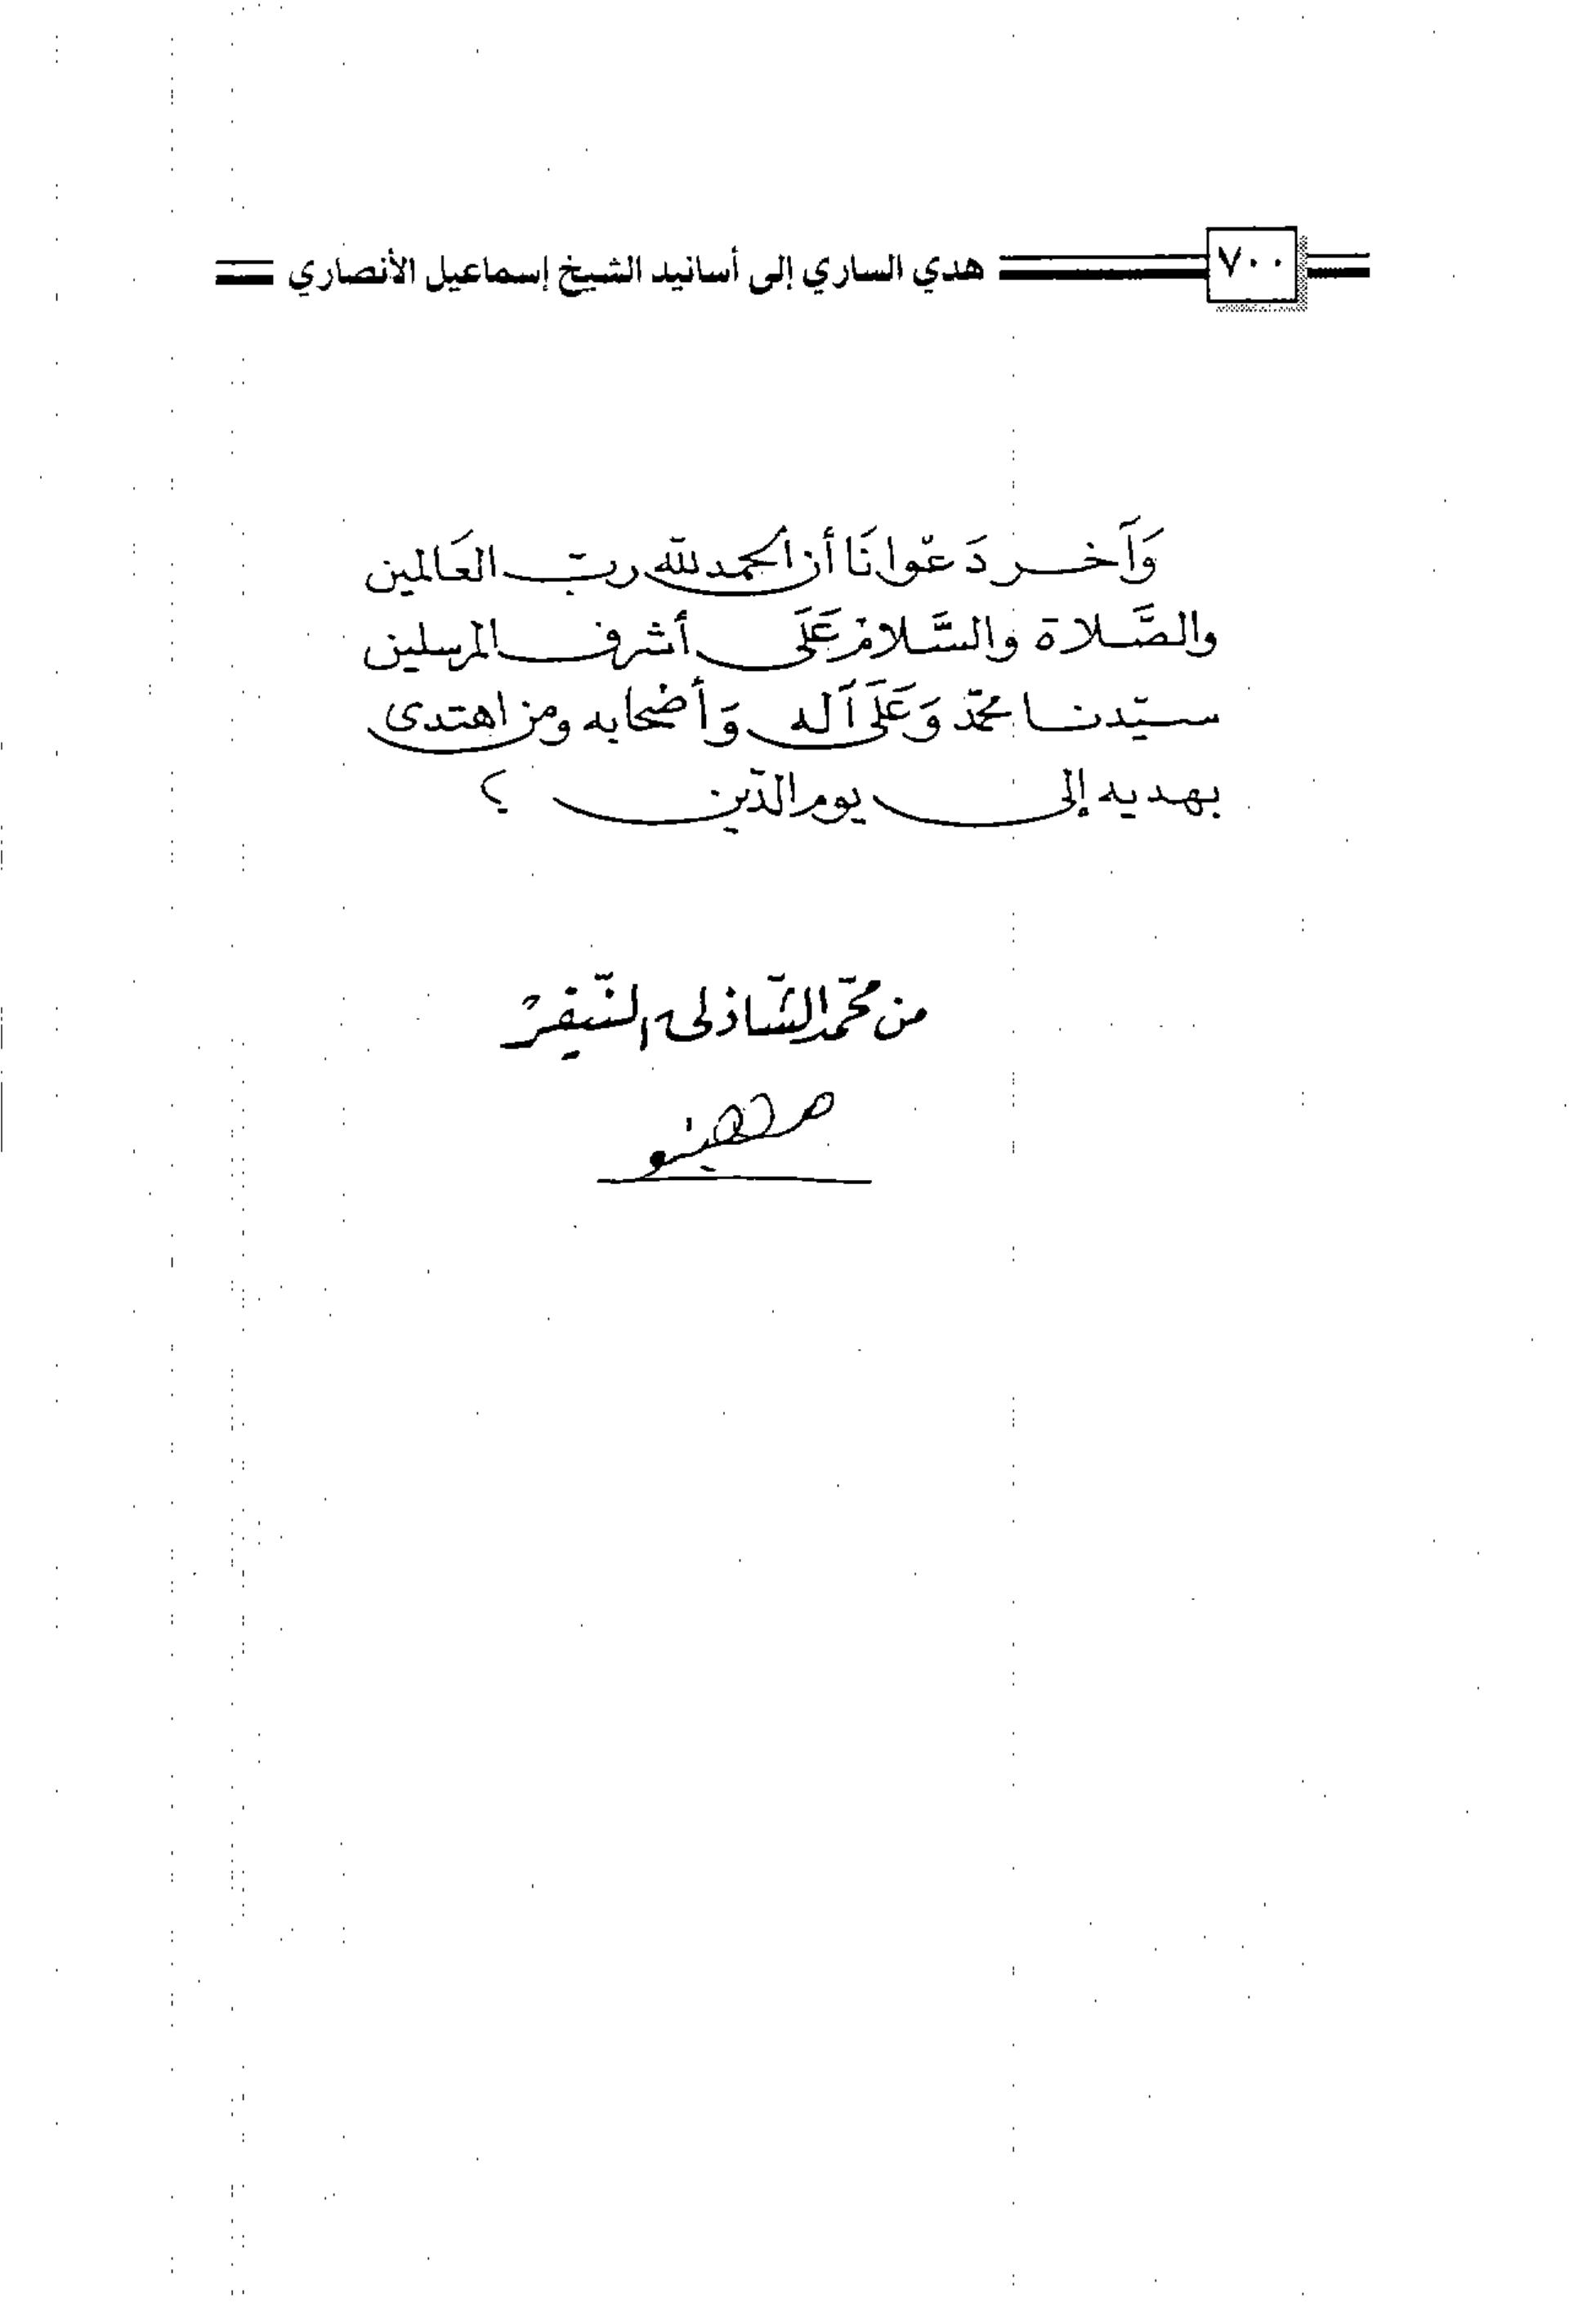 ٧٠٠ هدي الساري إلى أسانيد الشيخ إسماعيل الأنصاري
وَآخر دَعْوانَا أن الحمد لله ربّ العَالمين
والصَّلاة والسَّلام عَلَى أشرف المرسلين
سيّدنا محمّد وَعَلَى آله وَأصْحابه ومن اهتدى
بهديه إلى يوم الدّين
من محمّد الشّاذلي النّيفرْ